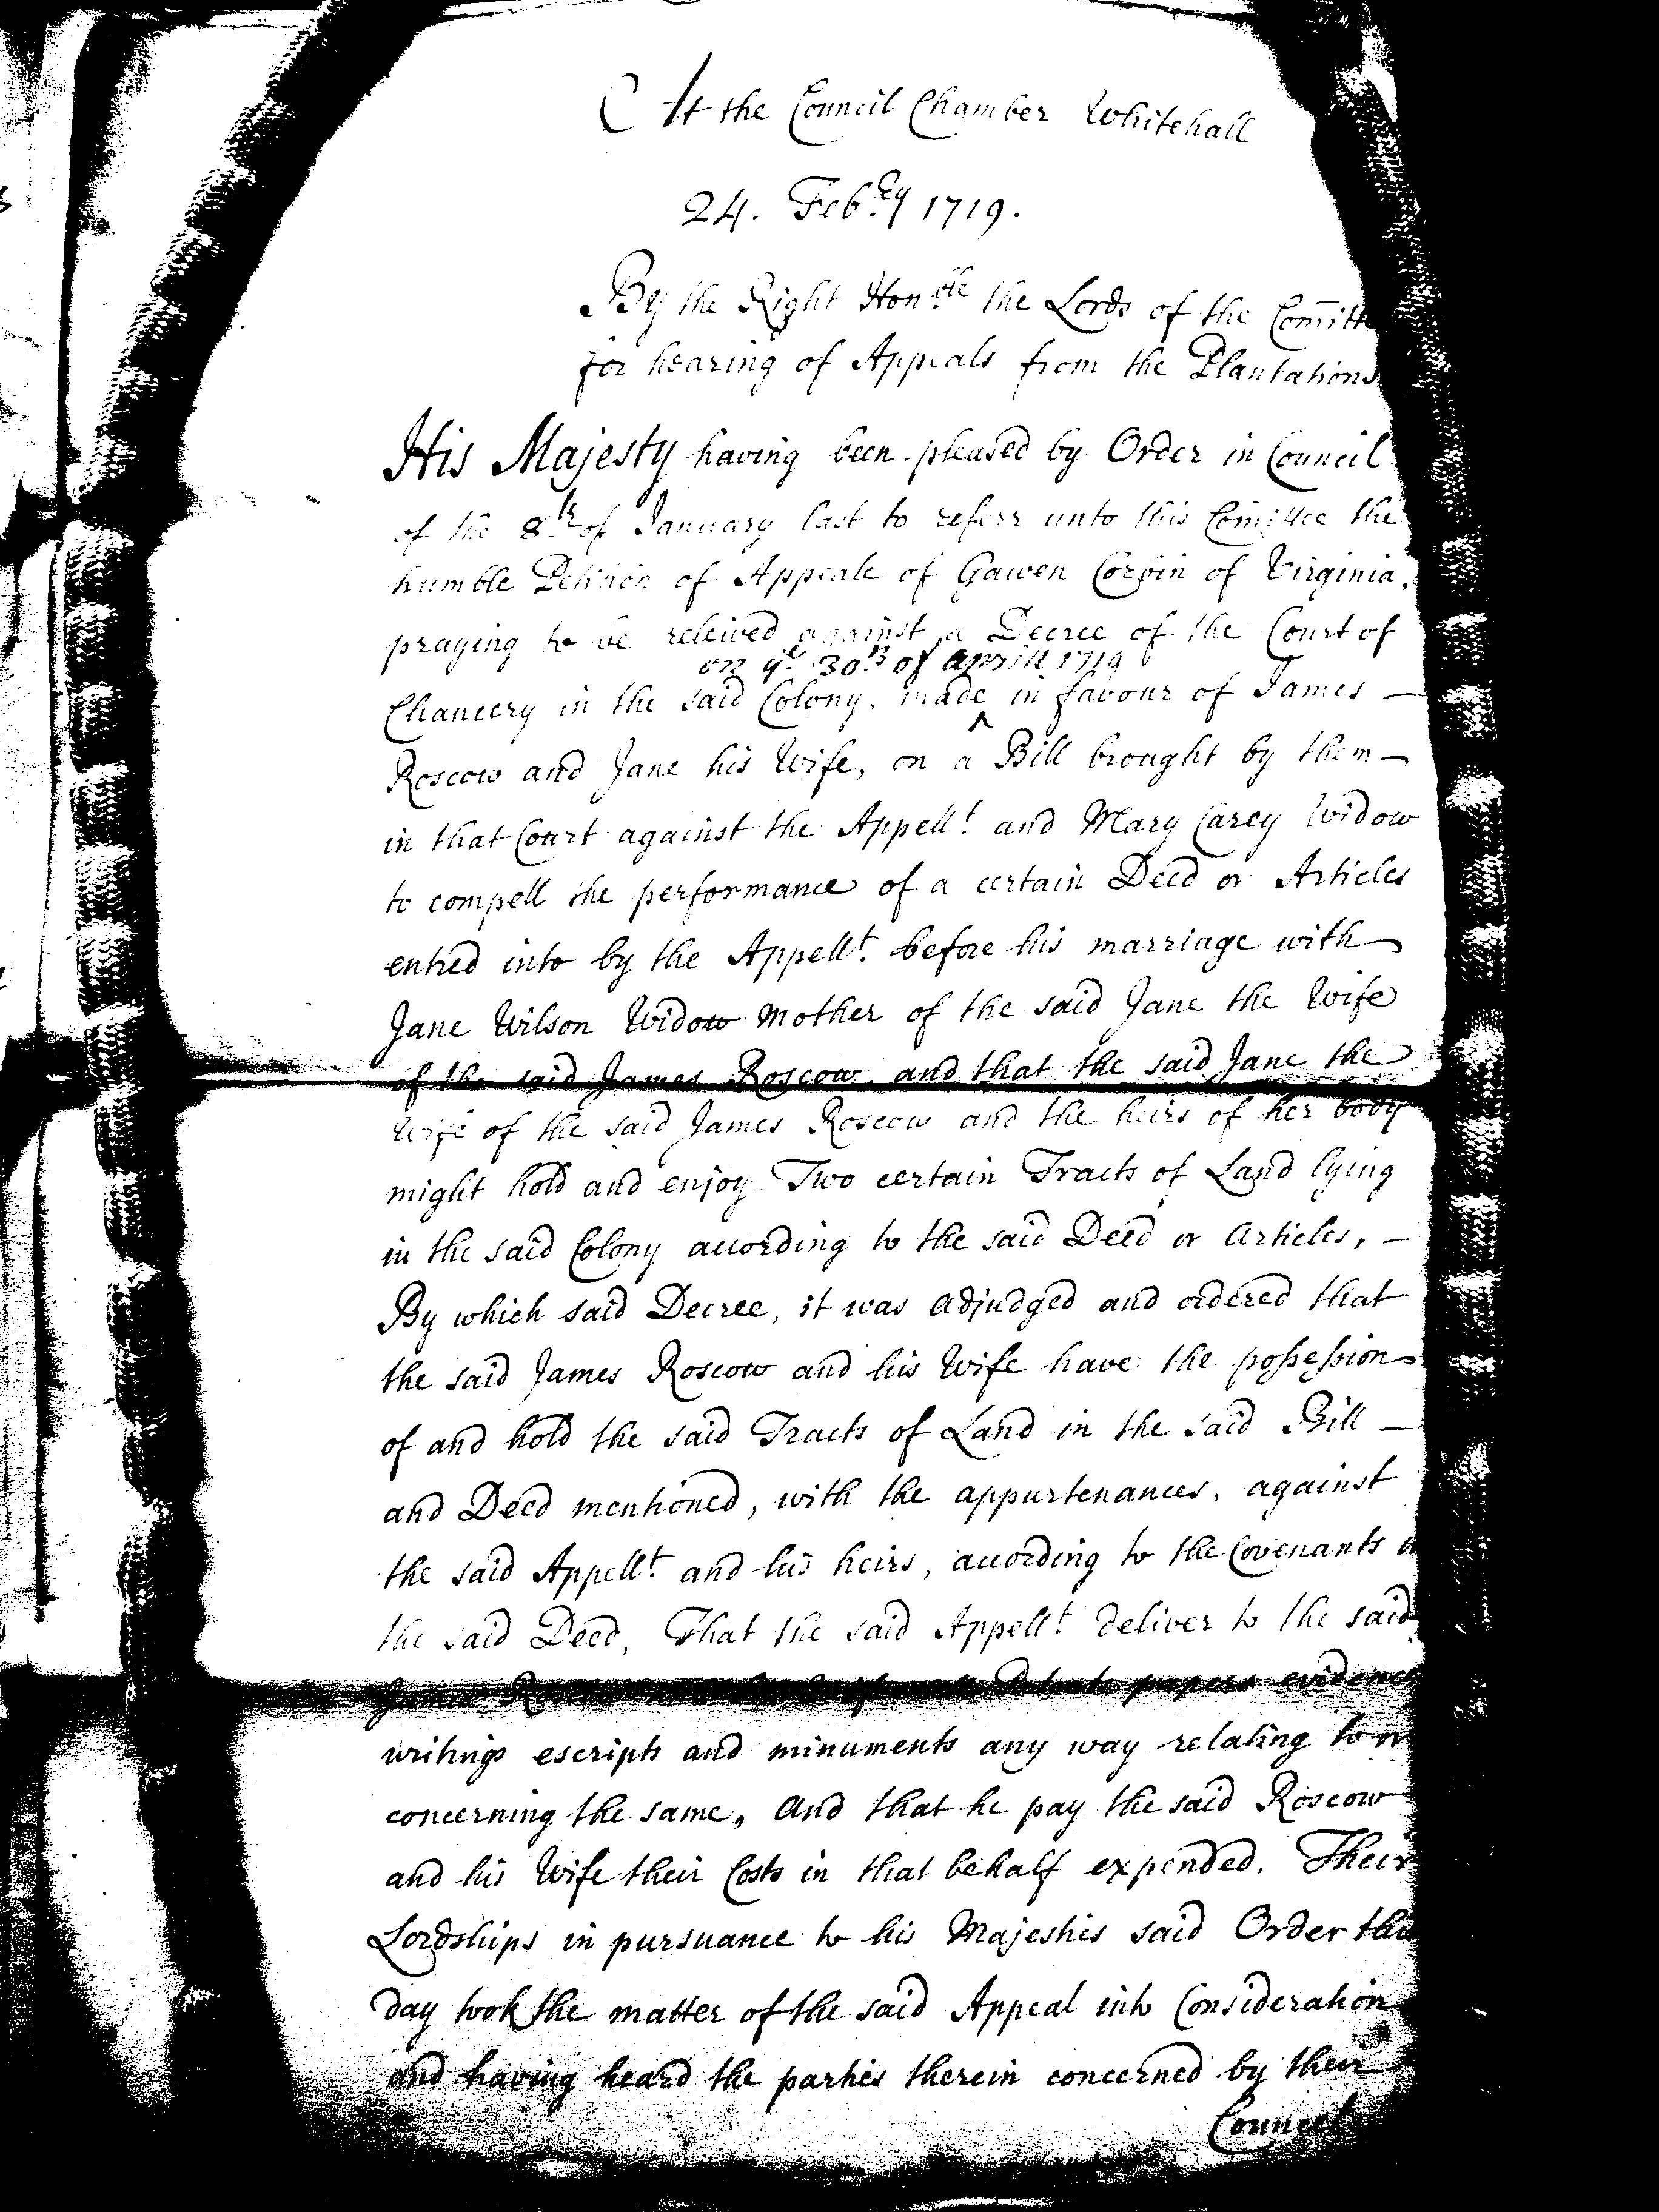 At the Council Chamber Whitehall
24. Feb.ry 1719.
By the Right Hon.ble the Lords of the Comitt
for hearing of Appeals from the Plantations
His Majesty having been pleased by Order in Council
of the 8.th of January last to referr unto this Comittee the
humble Petition of Appeale of Gawen Corbin of Virginia,
praying to be releived against a Decree of the Court of
on ye 30.th of Aprill 1719
Chancery in the said Colony, made ^ in favour of James —
Roscow and Jane his Wife, on a Bill brought by them —
in that Court against the Appell.t and Mary Carey Widow
to compell the performance of a certain Deed or Articles
entred into by the Appell.t before his marriage with
Jane Wilson Widow Mother of the said Jane the Wife
of the said James Roscow, and that the said Jane the
Wife of the said James Roscow and the heirs of her body
might hold and enjoy Two certain Tracts of Land lying
in the said Colony according to the said Deed or Articles, —
By which said Decree, it was adjudged and ordered that
the said James Roscow and his Wife have the possession
of and hold the said Tracts of Land in the said Bill —
and Deed mentioned, with the appurtenances, against
the said Appell.t and his heirs, according to the Covenants in
the said Deed, That the said Appell.t deliver to the said
James Roscow papers evidence
writings escripts and minuments any way relating to or
concerning the same, And that he pay the said Roscow
and his Wife their Costs in that behalf expended. Their
Lordships in pursuance to his Majesties said Order this
day took the matter of the said Appeal into Consideration
and having heard the parties therein concerned by their
Councel